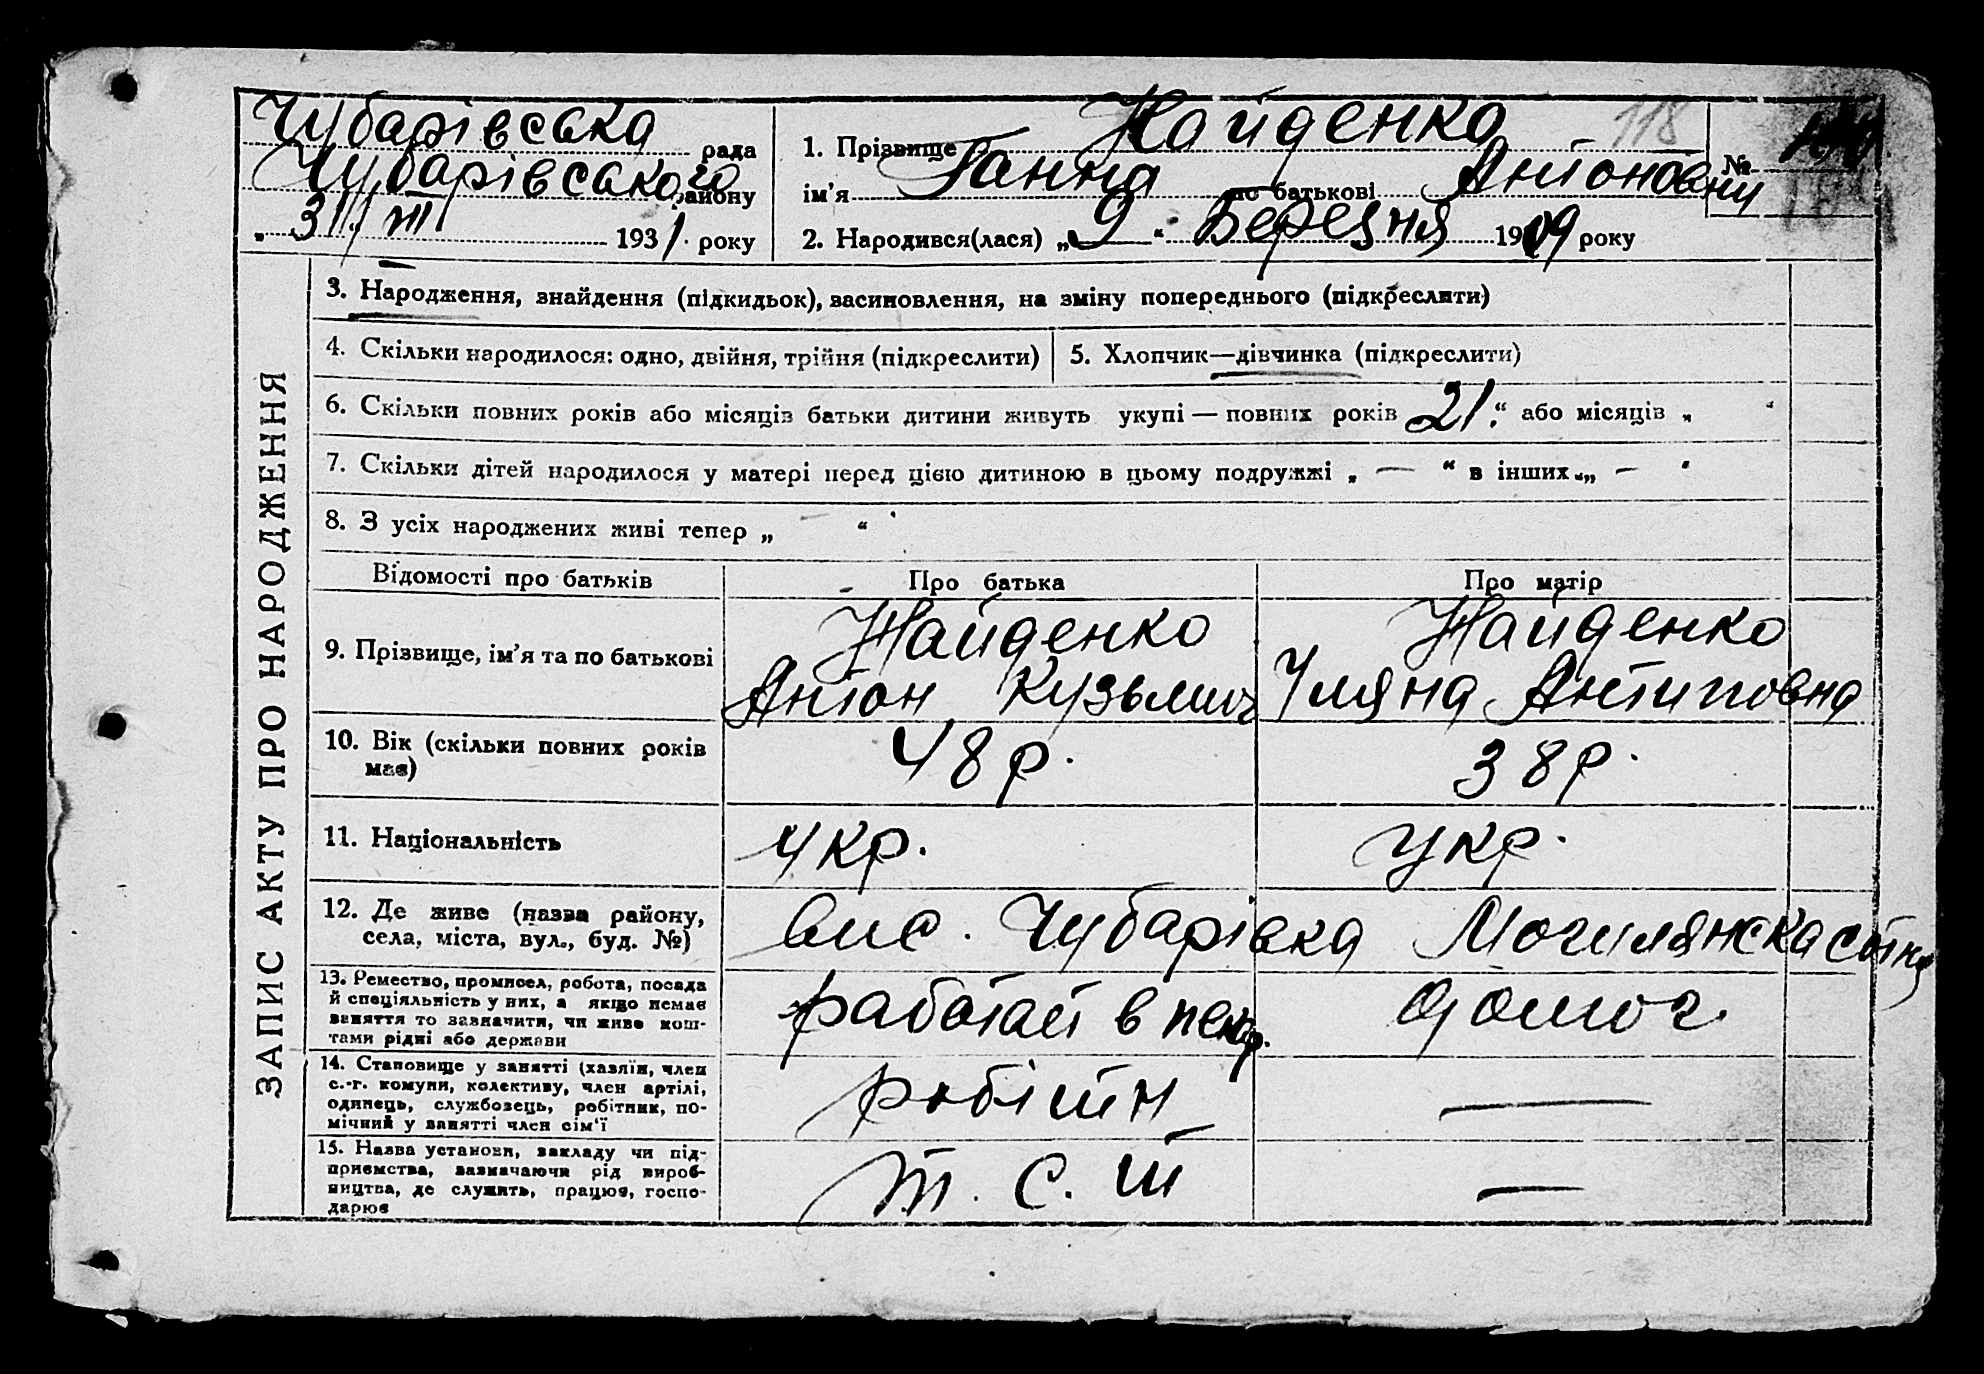 Чубарівська рада
Чубарівського району
„ 31 “ III 1931 року
1. Прізвище Найденко 118 №
ім’я Ганна по батькові Антоновни
2. Народився(лася) „ 9 “ Березня 1909 року
ЗАПИС АКТУ ПРО НАРОДЖЕННЯ
3. Народження, знайдення (підкидьок), засиновлення, на зміну попереднього (підкреслити)
4. Скільки народилося: одно, двійня, трійня (підкреслити)
5. Хлопчик—дівчинка (підкреслити)
6. Скільки повних років або місяців батьки дитини живуть укупі — повних років 21 “ або місяців „ “
7. Скільки дітей народилося у матері перед цією дитиною в цьому подружжі „ — “ в інших „ — “
8. З усіх народжених живі тепер „ “
Відомості про батьків Про батька Про матір
9. Прізвище, ім’я та по батькові
Найденко
Антон Кузьмич
Найденко
Уляна Антиповна
10. Вік (скільки повних років
має)
48 р.
38 р.
11. Національність
укр.
укр.
12. Де живе (назва району,
села, міста, вул., буд. №)
вис. Чубарівка Могилянска сотня
13. Ремество, промисел, робота, посада
й спеціяльність у них, а якщо немає
заняття то зазначити, чи живе кош-
тами рідні або держави
работает в пекар.
домог.
14. Становище у занятті (хазяїн, член
с.-г. комуни, колективу, член артілі,
одинець, службовець, робітник, по-
мічний у занятті член сім’ї
робітн
—
15. Назва установи, закладу чи під-
приємства, зазначаючи рід вироб-
ництва, де служить, працює, госпо-
дарює
Т. С. Т
—